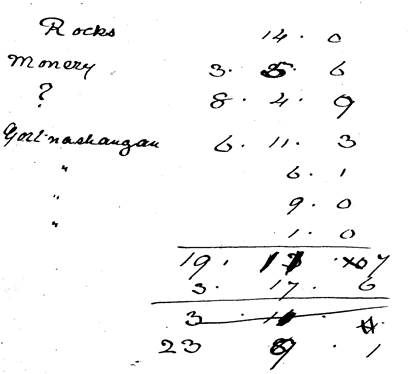 Rocks 14 . 0
Monery 3 . 5 . 6
? 8 . 4 . 9
Gort-nashangan 6 . 11 . 3
" 6 . 1
" 9 . 0
" 1 . 0
19 . 11 . 7
3 . 17 . 6
23 9 . 1